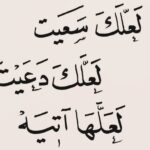 لَعَلَّكَ سَعَيت
لَعِلَّكَ دَعَيْت
لَعَلَّهَا آتِيَهْ